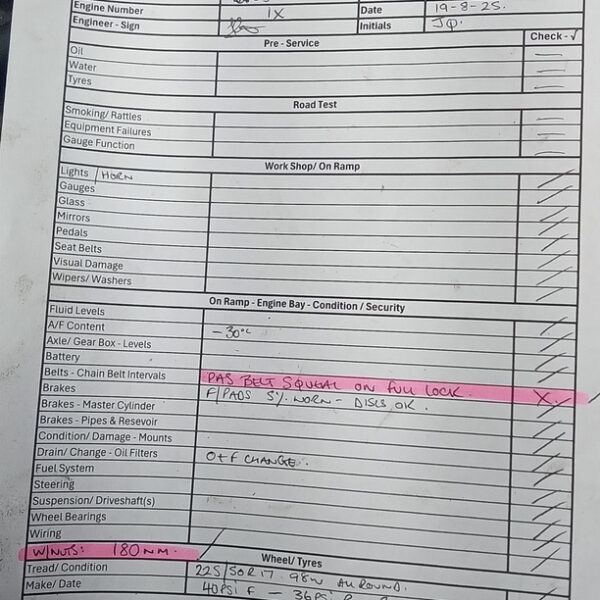 Engine Number 1X Date 19-8-25.
Engineer - Sign Initials JQ.
Pre - Service Check - √
Oil
Water
Tyres
Road Test
Smoking/ Rattles
Equipment Failures
Gauge Function
Work Shop/ On Ramp
Lights / HORN
Gauges
Glass
Mirrors
Pedals
Seat Belts
Visual Damage
Wipers/ Washers
On Ramp - Engine Bay - Condition / Security
Fluid Levels
A/F Content -30°C
Axle/ Gear Box - Levels
Battery
Belts - Chain Belt Intervals PAS BELT SQUEAL ON FULL LOCK. X.
Brakes F/PADS 5% WORN - DISCS OK.
Brakes - Master Cylinder
Brakes - Pipes & Resevoir
Condition/ Damage - Mounts
Drain/ Change - Oil Filters O+F CHANGE.
Fuel System
Steering
Suspension/ Driveshaft(s)
Wheel Bearings
Wiring
W/NUTS: 180NM. Wheel/ Tyres
Tread/ Condition 225/50R17. 98W ALL ROUND.
Make/ Date 40PSI F - 36PSI